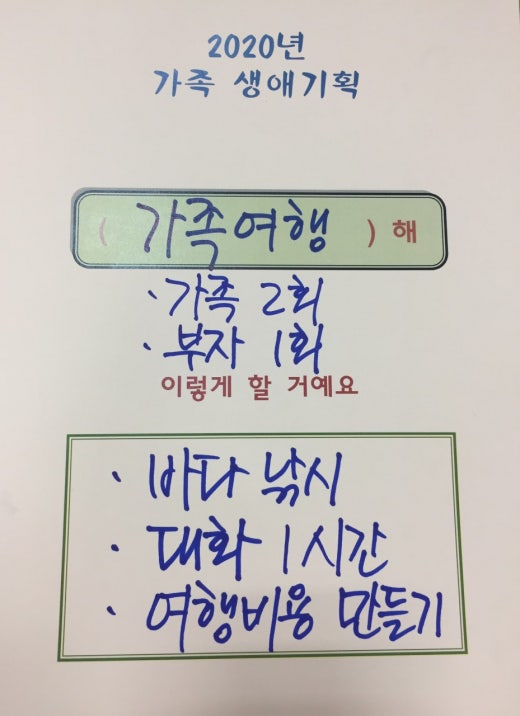 2020년
가족 생애기획
( 가족여행 ) 해
· 가족 2회
· 부자 1회
이렇게 할 거예요
· 바다 낚시
· 대화 1시간
· 여행비용 만들기